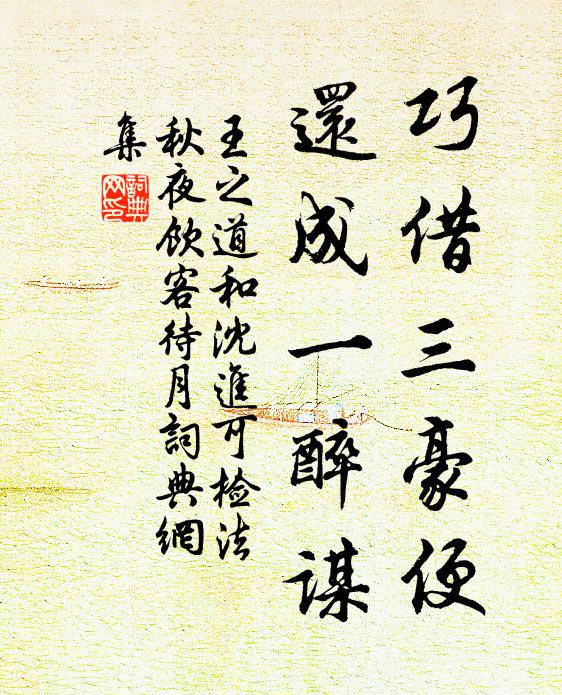 巧借三豪便
還成一醉謀
王之道和沈進可檢法
秋夜飲客待月詞典網
集
詞典
网印